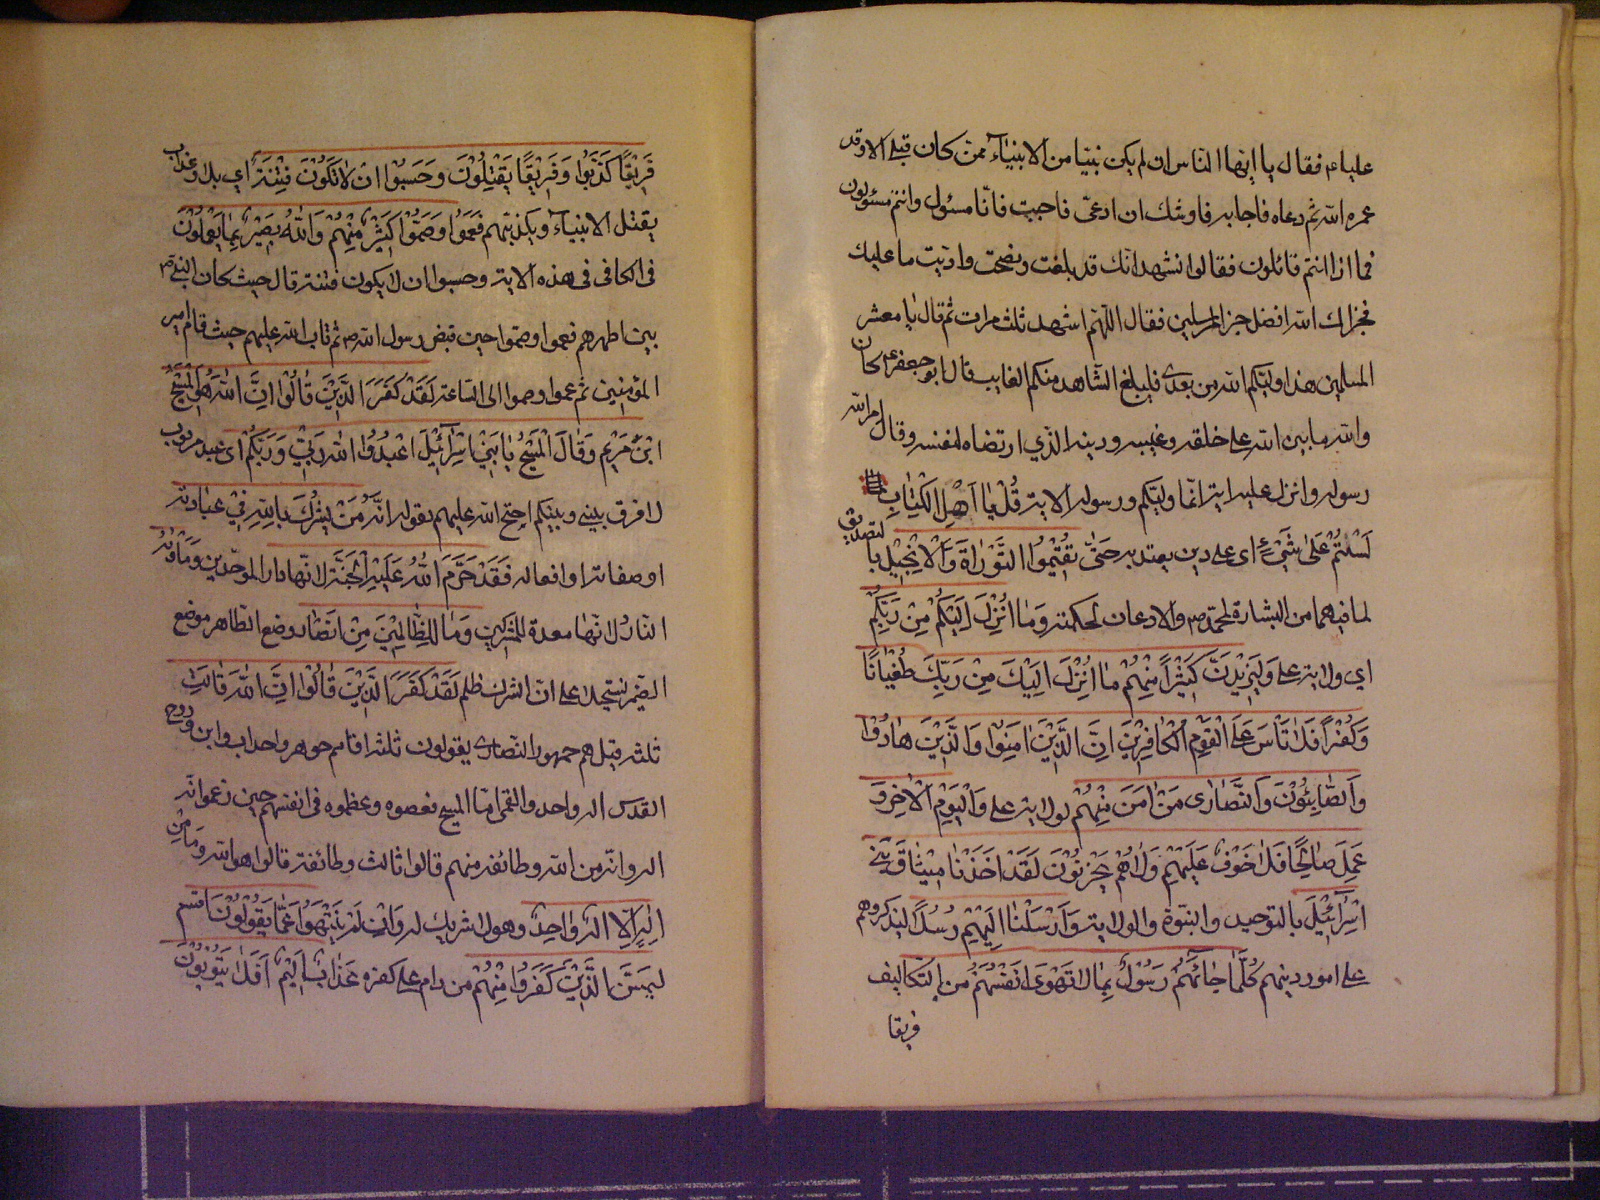 علياء فقال يا ايها الناس ان لم يكن نبيّا من الانبياء ممّن كان قبلي الا وقد
عمره الله ثم دعاه فاجابه فاوشك ان ادعىٰ فاجيب فانّا مسئول وانتم مسئولون
فما اذا انتم قائلون فقالوا نشهد انّك قد بلغت ونصحت واديت ما عليك
فجزاك الله افضل جزاء المرسلين فقال اللّهم اشهد ثلث مرات ثم قال يا معشر
المسلمين هذا وليّكم الله من بعدى فليبلغ الشّاهد منكم الغايب قال ابو جعفر ع كان
والله مابين الله على خلقه وغيبه ودينه الذي ارتضاه لنفسه وقال امر الله
رسوله وانزل عليه اية انّما وليّكم ورسوله الاية قُلْ يٰا اَهْلَ الْكِتٰابِ
لَسْتُمْ عَلىٰ شَيْءٍ اى على دين يعتد به حَتّىٰ تُقيٖمُوا التَّوْرٰاةَ وَالْاِنْجٖيلَ بالتصديق
لما فيهما من البشارة لمحمّد ص والاذعان لحكمته وَمٰا اُنْزِلَ اِلَيْكُمْ مِنْ رَبِّكُمْ
اي ولاية علي وَلَيَزٖيدَنَّ كَثٖيرًا مِنْهُمْ مٰا اُنْزِلَ اِلَيْكَ مِنْ رَبِّكَ طُغْيٰانًا
وَكُفْرًا فَلٰا تَأْسَ عَلَى الْقَوْمِ الْكٰافِرٖينَ اِنَّ الَّذٖينَ اٰمَنُوا وَالَّذٖينَ هٰادُوا
وَالصّٰابِئُونَ وَالنَّصٰارىٰ مَنْ اٰمَنَ مِنْهُمْ بولاية علي وَالْيَوْمِ الْاٰخِرِ وَ
عَمِلَ صٰالِحًا فَلٰا خَوْفٌ عَلَيْهِمْ وَلٰا هُمْ يَحْزَنُونَ لَقَدْ اَخَذْنٰا مٖيثٰاقَ بَنٖي
اِسْرٰائٖيلَ بالتوحيد والنبوّة والولاية وَاَرْسَلْنٰا اِلَيْهِمْ رُسُلًا ليذكروهم
على امور دينهم كُلَّمٰا جٰائَهُمْ رَسُولٌ بِمٰا لٰا تَهْوىٰ اَنْفُسُهُمْ من التكاليف
فريقا
فَرٖيقًا كَذَّبُوا وَفَرٖيقًا يَقْتُلُونَ وَحَسِبُوا اَنْ لٰا تَكُونَ فِتْنَةٌ اي بلاء وعذاب
بقتل الانبياء وتكذيبهم فَعَمُوا وَصَمُّوا كَثٖيرٌ مِنْهُمْ وَاللهُ بَصٖيرٌ بِمٰا يَعْمَلُونَ
فى الكافى فى هذه الاية وحسبوا ان لا يكون فتنة قال حيث كان النبي ص
بين اظهرهم فعموا وصمّوا حين قبض رسول الله ص ثم تاب الله عليهم حيث قام امير
المؤمنين ثم عموا وصموا الى الساعة لَقَدْ كَفَرَ الَّذٖينَ قٰالُوا اِنَّ اللهَ هُوَ الْمَسٖيحُ
ابْنُ مَرْيَمَ وَقٰالَ الْمَسٖيحُ يٰا بَنٖي اِسْرٰائٖيلَ اعْبُدُوا اللهَ رَبّٖي وَرَبَّكُمْ اى عبد مربوب
لا فرق بيني وبينكم احتج الله عليهم بقوله اِنَّهُ مَنْ يُشْرِكْ بِاللهِ فٖي عبادته
او صفاته او افعاله فَقَدْ حَرَّمَ اللهُ عَلَيْهِ الْجَنَّةَ لانّها دار الموحّدين وَمَأْوٰيهُ
النّارُ لانّها معدة للمشركين وَمٰا لِلظّٰالِمٖينَ مِنْ اَنْصٰارٍ وضع الظاهر موضع
الضمير تسجيلا على انّ الشرك ظلم لَقَدْ كَفَرَ الَّذٖينَ قٰالُوا اِنَّ اللهَ ثٰالِثُ
ثلثة قيل هم جمهور النصارى يقولون ثلثة اقانيم جوهر واحد اب وابن وروح
القدس اله واحد والقمى امّا المسيح فعصوه وعظموه فى انفسهم حين زعموا انّه
اله وانّه من الله وطائفة منهم قالوا ثالث وطائفة قالوا هو الله وَمٰا مِنْ
اِلٰهٍ اِلّٰا اِلٰهٌ وٰاحِدٌ وهو لا شريك له وَاِنْ لَمْ يَنْتَهُوا عَمّٰا يَقُولُونَ
لَيَمَسَّنَّ الَّذٖينَ كَفَرُوا مِنْهُمْ من دام على كفره عَذٰابٌ اَلٖيمٌ اَفَلٰا يَتُوبُونَ